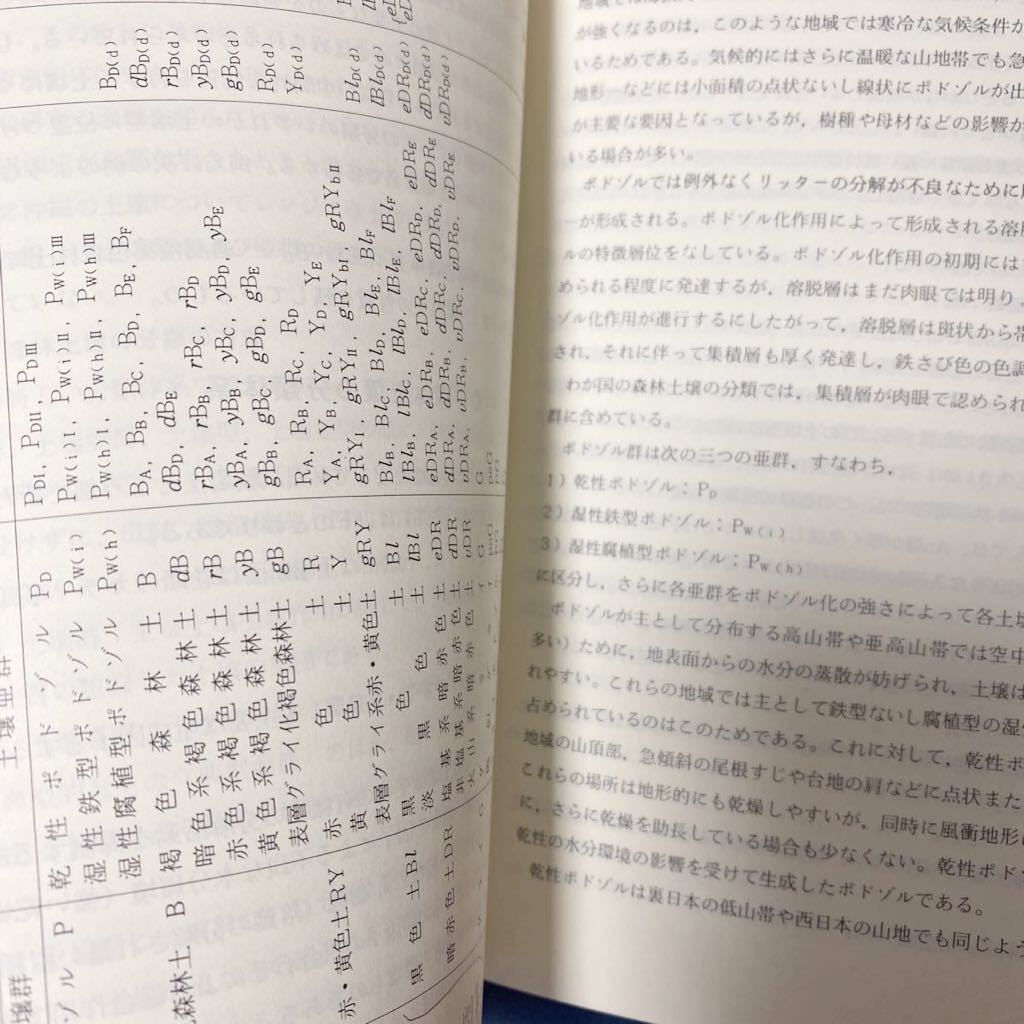 土壌亜群
乾性ポドゾル PD PDI, PDII, PDIII
湿性鉄型ポドゾル PW(i) PW(i)I, PW(i)II, PW(i)III
湿性腐植型ポドゾル PW(h) PW(h)I, PW(h)II, PW(h)III
褐色森林土 B BA, BB, BC, BD, BE, BF BD(d)
暗色系褐色森林土 dB dBD, dBE dBD(d)
赤色系褐色森林土 rB rBA, rBB, rBC, rBD rBD(d)
黄色系褐色森林土 yB yBA, yBB, yBC, yBD, yBE yBD(d)
表層グライ化褐色森林土 gB gBB, gBC, gBD, gBE gBD(d)
赤色土 R RA, RB, RC, RD RD(d)
黄色土 Y YA, YB, YC, YD, YE YD(d)
表層グライ系赤・黄色土 gRY gRYI, gRYII, gRYbI, gRYbII
黒色土 Bl BlB, BlC, BlD, BlE, BlF BlD(d)
淡黒色土 lBl lBlB, lBlC, lBlD, lBlE, lBlF lBlD(d)
塩基系暗赤色土 eDR eDRA, eDRB, eDRC, eDRD, eDRE eDRD(d)
非塩基系暗赤色土 dDR dDRA, dDRB, dDRC, dDRD, dDRE dDRD(d)
火山系暗赤色土 vDR vDRA, vDRB, vDRC, vDRD, vDRE vDRD(d)
壌群
ゾル P
色森林土 B
赤・黄色土RY
黒色土Bl
暗赤色土DR
が強くなるのは，このような地域では寒冷な気候条件が
いるためである。気候的にはさらに温暖な山地帯でも急
地形―などには小面積の点状ないし線状にポドゾルが出
が主要な要因となっているが，樹種や母材などの影響が
いる場合が多い。
ポドゾルでは例外なくリッターの分解が不良なために
ーが形成される。ポドゾル化作用によって形成される溶
ルの特徴層位をなしている。ポドゾル化作用の初期には
められる程度に発達するが，溶脱層はまだ肉眼では明り
ゾル化作用が進行するにしたがって，溶脱層は斑状から帯
され，それに伴って集積層も厚く発達し，鉄さび色の色調
わが国の森林土壌の分類では，集積層が肉眼で認められ
群に含めている。
ポドゾル群は次の三つの亜群，すなわち，
1）乾性ポドゾル：PD
2）湿性鉄型ポドゾル：PW(i)
3）湿性腐植型ポドゾル：PW(h)
に区分し，さらに各亜群をポドゾル化の強さによって各土壌
ポドゾルが主として分布する高山帯や亜高山帯では空中
多い）ために，地表面からの水分の蒸散が妨げられ，土壌は
れやすい。これらの地域では主として鉄型ないし腐植型の湿
占められているのはこのためである。これに対して，乾性ポ
地域の山頂部，急傾斜の尾根すじや台地の肩などに点状また
これらの場所は地形的にも乾燥しやすいが，同時に風衝地形
に，さらに乾燥を助長している場合も少なくない。乾性ポド
乾性の水分環境の影響を受けて生成したポドゾルである。
乾性ポドゾルは裏日本の低山帯や西日本の山地でも同じよう